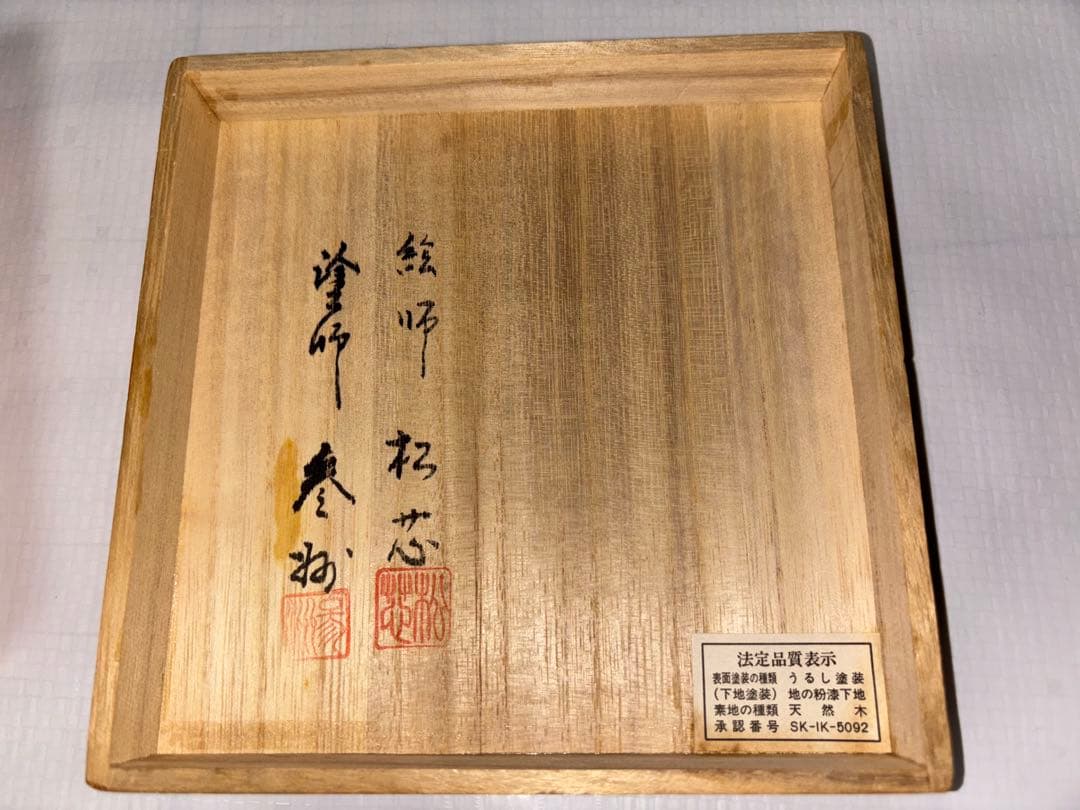 絵師 松芯
塗師 
松芯
法定品質表示
表面塗装の種類 うるし塗装
(下地塗装) 地の粉漆下地
素地の種類 天然木
承認番号 SK-IK-5092